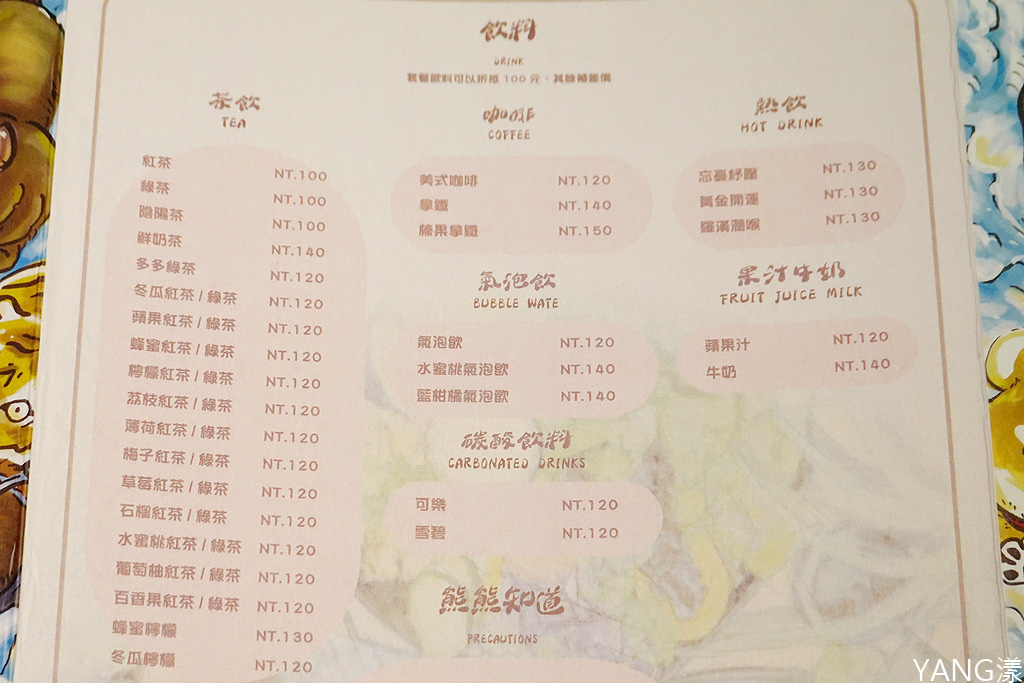 飲料
DRINK
套餐飲料可以折抵 100 元，其餘補差價
茶飲
TEA
紅茶 NT.100
綠茶 NT.100
陰陽茶 NT.100
鮮奶茶 NT.140
多多綠茶 NT.120
冬瓜紅茶 / 綠茶 NT.120
蘋果紅茶 / 綠茶 NT.120
蜂蜜紅茶 / 綠茶 NT.120
檸檬紅茶 / 綠茶 NT.120
荔枝紅茶 / 綠茶 NT.120
薄荷紅茶 / 綠茶 NT.120
梅子紅茶 / 綠茶 NT.120
草莓紅茶 / 綠茶 NT.120
石榴紅茶 / 綠茶 NT.120
水蜜桃紅茶 / 綠茶 NT.120
葡萄柚紅茶 / 綠茶 NT.120
百香果紅茶 / 綠茶 NT.120
蜂蜜檸檬 NT.130
冬瓜檸檬 NT.120
咖啡
COFFEE
美式咖啡 NT.120
拿鐵 NT.140
榛果拿鐵 NT.150
氣泡飲
BUBBLE WATE
氣泡飲 NT.120
水蜜桃氣泡飲 NT.140
藍柑橘氣泡飲 NT.140
碳酸飲料
CARBONATED DRINKS
可樂 NT.120
雪碧 NT.120
熊熊知道
PRECAUTIONS
熱飲
HOT DRINK
忘憂紓壓 NT.130
黃金開運 NT.130
羅漢潤喉 NT.130
果汁牛奶
FRUIT JUICE MILK
蘋果汁 NT.120
牛奶 NT.140
YANG漾